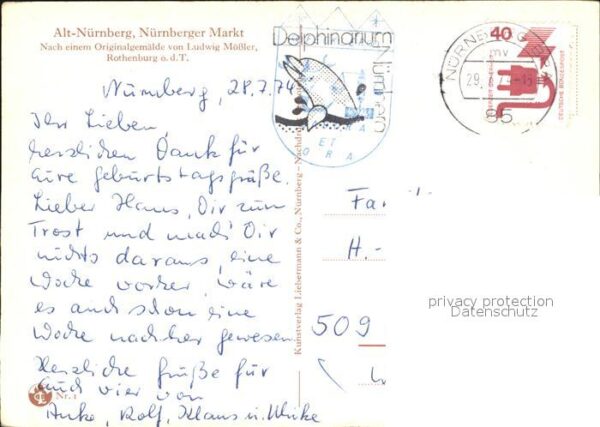 Alt-Nürnberg, Nürnberger Markt
Nach einem Originalgemälde von Ludwig Mößler,
Rothenburg o.d.T.
Nürnberg, 28.7.74
Ihr Lieben,
herzlichen Dank für
eure Geburtstagsgrüße.
Lieber Hans, Dir zum
Trost und mach Dir
nichts daraus, eine
Woche vorher wäre
es auch schon eine
Woche nachher gewesen
Herzliche Grüße für
Euch vier von
Anke, Rolf, Klaus u. Ulrike
Nr. 1
Kunstverlag Liebermann & Co., Nürnberg - Nachdr
Delphinarium
Nürnberg
ET
ORA
NÜRNBERG
mv
29.
85
40
DEUTSCHE BUNDESPOST
Fa
H.-
509
privacy protection
Datenschutz